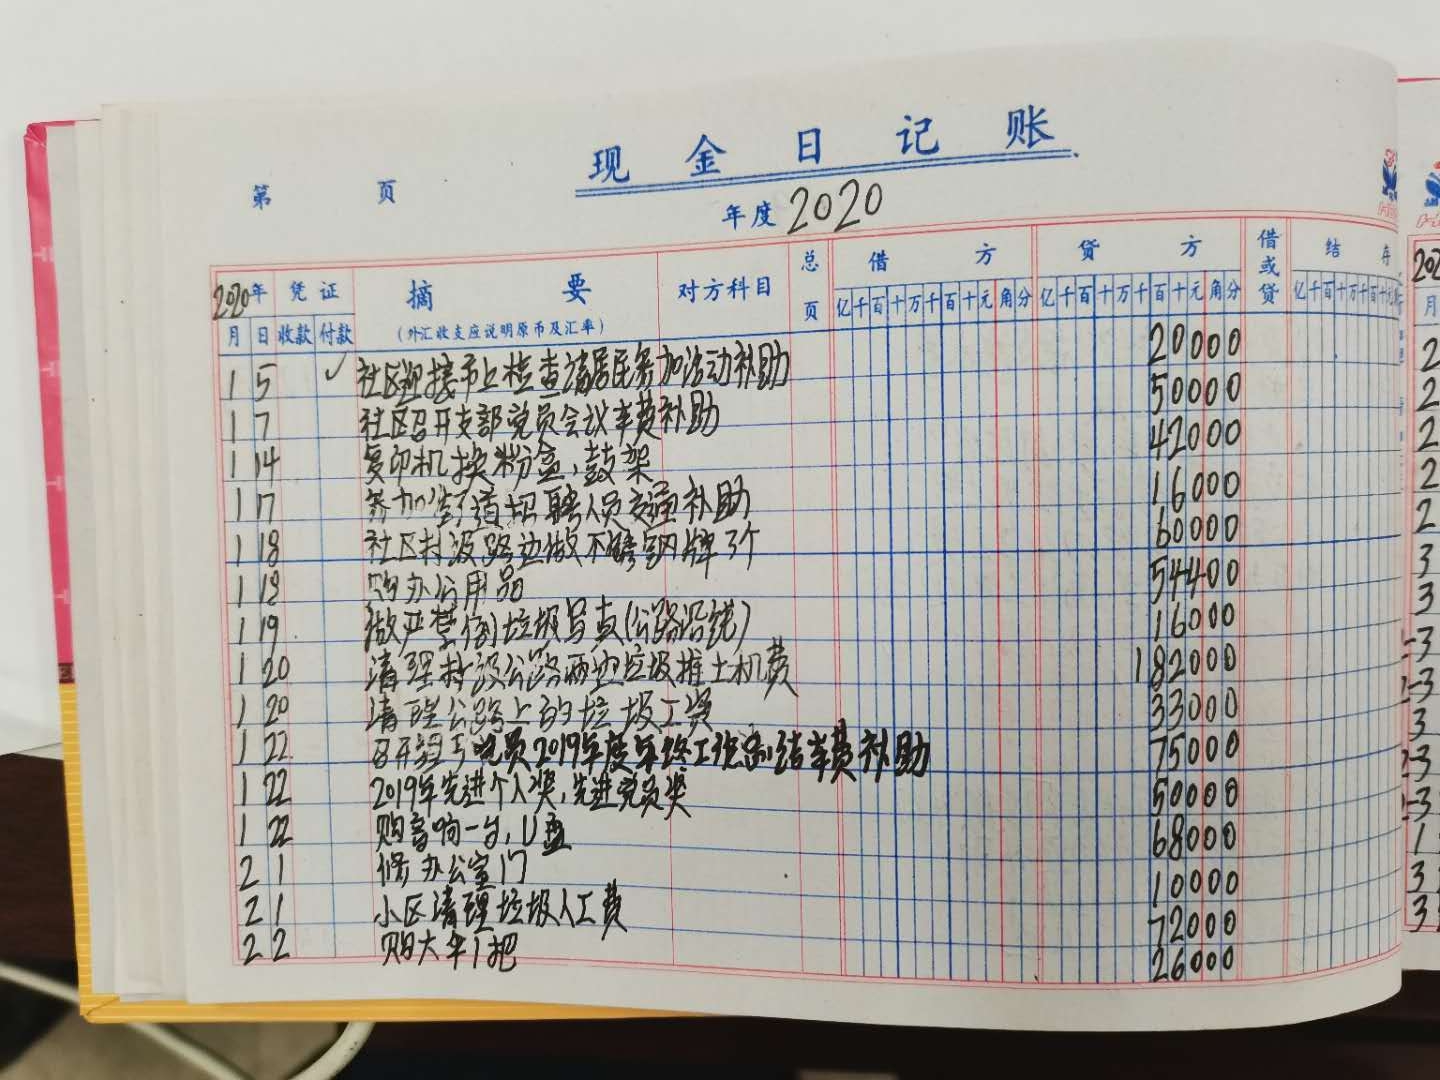 现金日记账
第 页
年度 2020
2020年 凭证 摘要 对方科目 总页 借方 贷方 借或贷 结存
月 日 收款 付款 (外汇收支应说明原币及汇率) 亿千百十万千百十元角分 亿千百十万千百十元角分 亿千百十万千百十元
1 5 ✓ 社区迎接市上检查请居民参加活动补助 20000
1 7 社区召开支部党员会议车费补助 50000
1 14 复印机换粉盒,鼓架 42000
1 17 参加街道招聘人员交通补助 16000
1 18 社区村级路边做不锈钢牌3个 60000
1 18 购办公用品 54400
1 19 做严禁倒垃圾写真(公路沿线) 16000
1 20 清理村级公路两边垃圾推土机费 182000
1 20 清理公路上的垃圾工资 33000
1 22 召开 党员2019年度年终工作总结车费补助 75000
1 22 2019年先进个人奖,先进党员奖 50000
1 22 购音响一台,U盘 68000
2 1 修办公室门 10000
2 1 小区清理垃圾人工费 72000
2 2 购大伞1把 26000